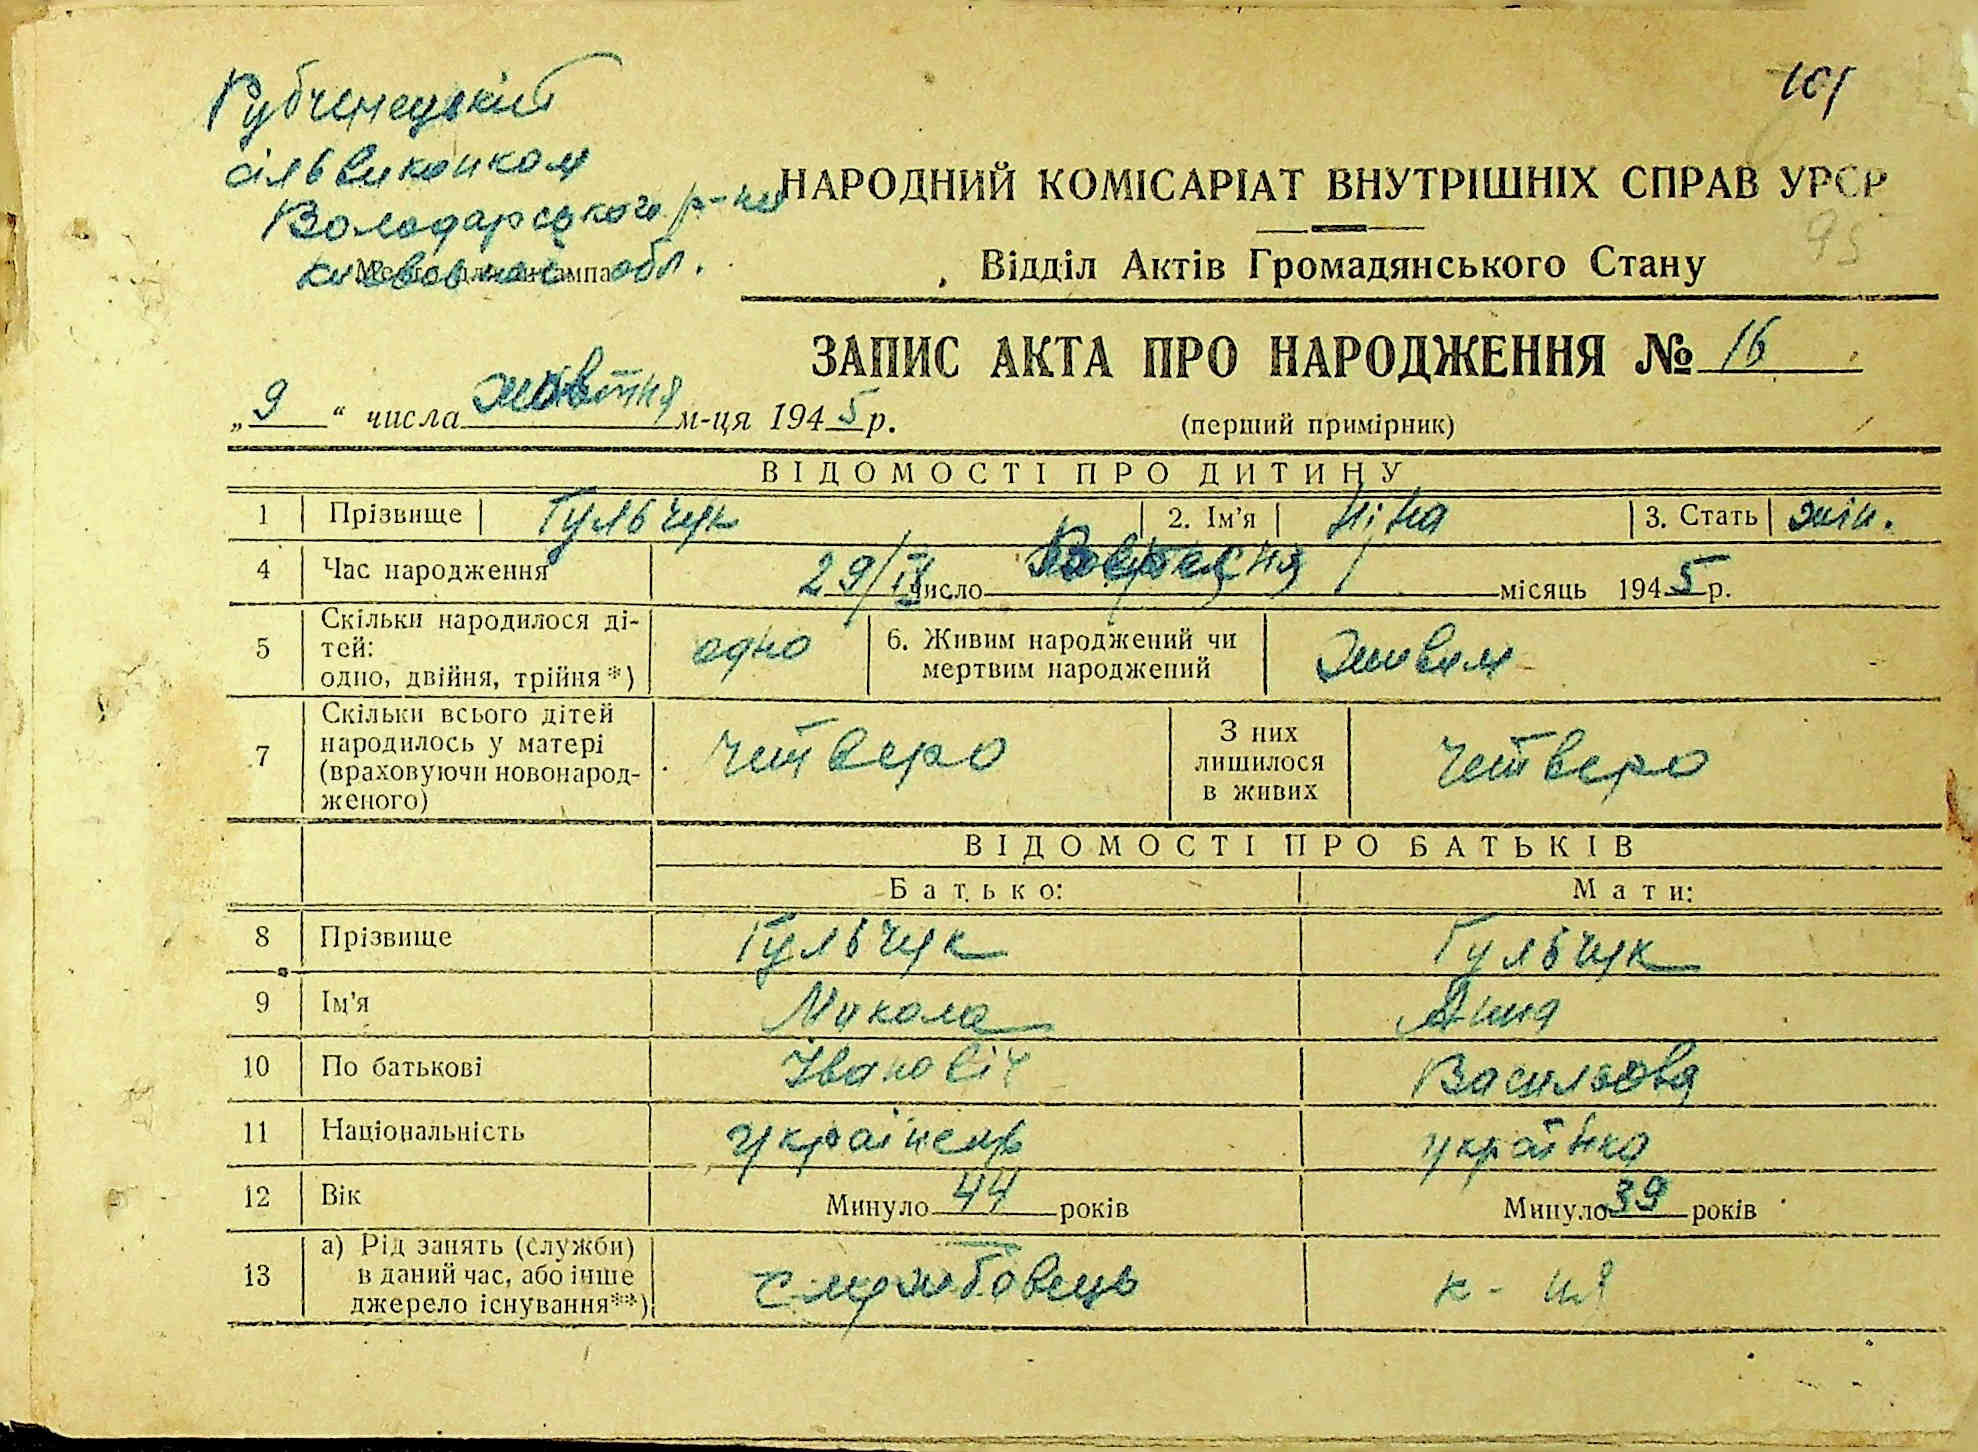 Рубченецький
101
сільвиконком
НАРОДНИЙ КОМІСАРІАТ ВНУТРІШНІХ СПРАВ УРСР
Володарського р-ну
95
обл.
Відділ Актів Громадянського Стану
ЗАПИС АКТА ПРО НАРОДЖЕННЯ № 16
„9“ числа жовтня м-ця 1945 р.
(перший примірник)
ВІДОМОСТІ ПРО ДИТИНУ
1 Прізвище Гульчук 2. Ім'я Ніна 3. Стать жін.
4 Час народження 29/IX число вересня місяць 1945 р.
5 Скільки народилося ді-
тей:
одно, двійня, трійня*)
одно
6. Живим народжений чи
мертвим народжений
живим
7 Скільки всього дітей
народилось у матері
(враховуючи новонарод-
женого)
четверо
З них
лишилося
в живих
четверо
ВІДОМОСТІ ПРО БАТЬКІВ
Батько: Мати:
8 Прізвище Гульчук Гульчук
9 Ім'я Микола Анна
10 По батькові Івановіч Васильовна
11 Національність українець українка
12 Вік Минуло 44 років Минуло 39 років
13 а) Рід занять (служби)
в даний час, або інше
джерело існування**)
службовець к-ця